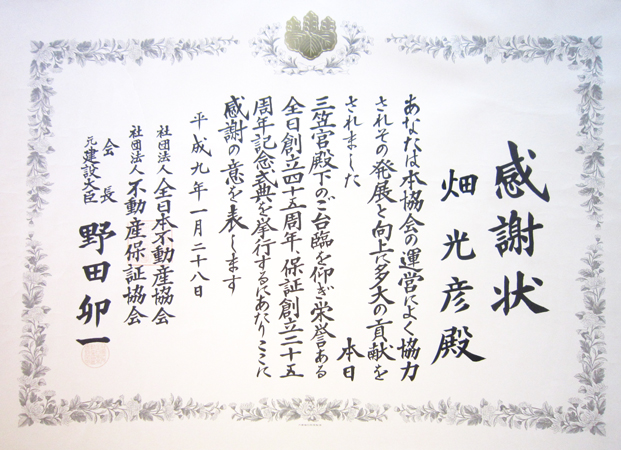 感謝状
畑光彦殿
あなたは本協会の運営によく協力
されその発展と向上に多大の貢献を
されました　本日
三笠宮殿下のご台臨を仰ぎ栄誉ある
全日創立四十五周年、保証創立二十五
周年記念式典を挙行するにあたりここに
感謝の意を表します
平成九年一月二十八日
社団法人 全日本不動産協会
社団法人 不動産保証協会
会長
元建設大臣
野田卯一